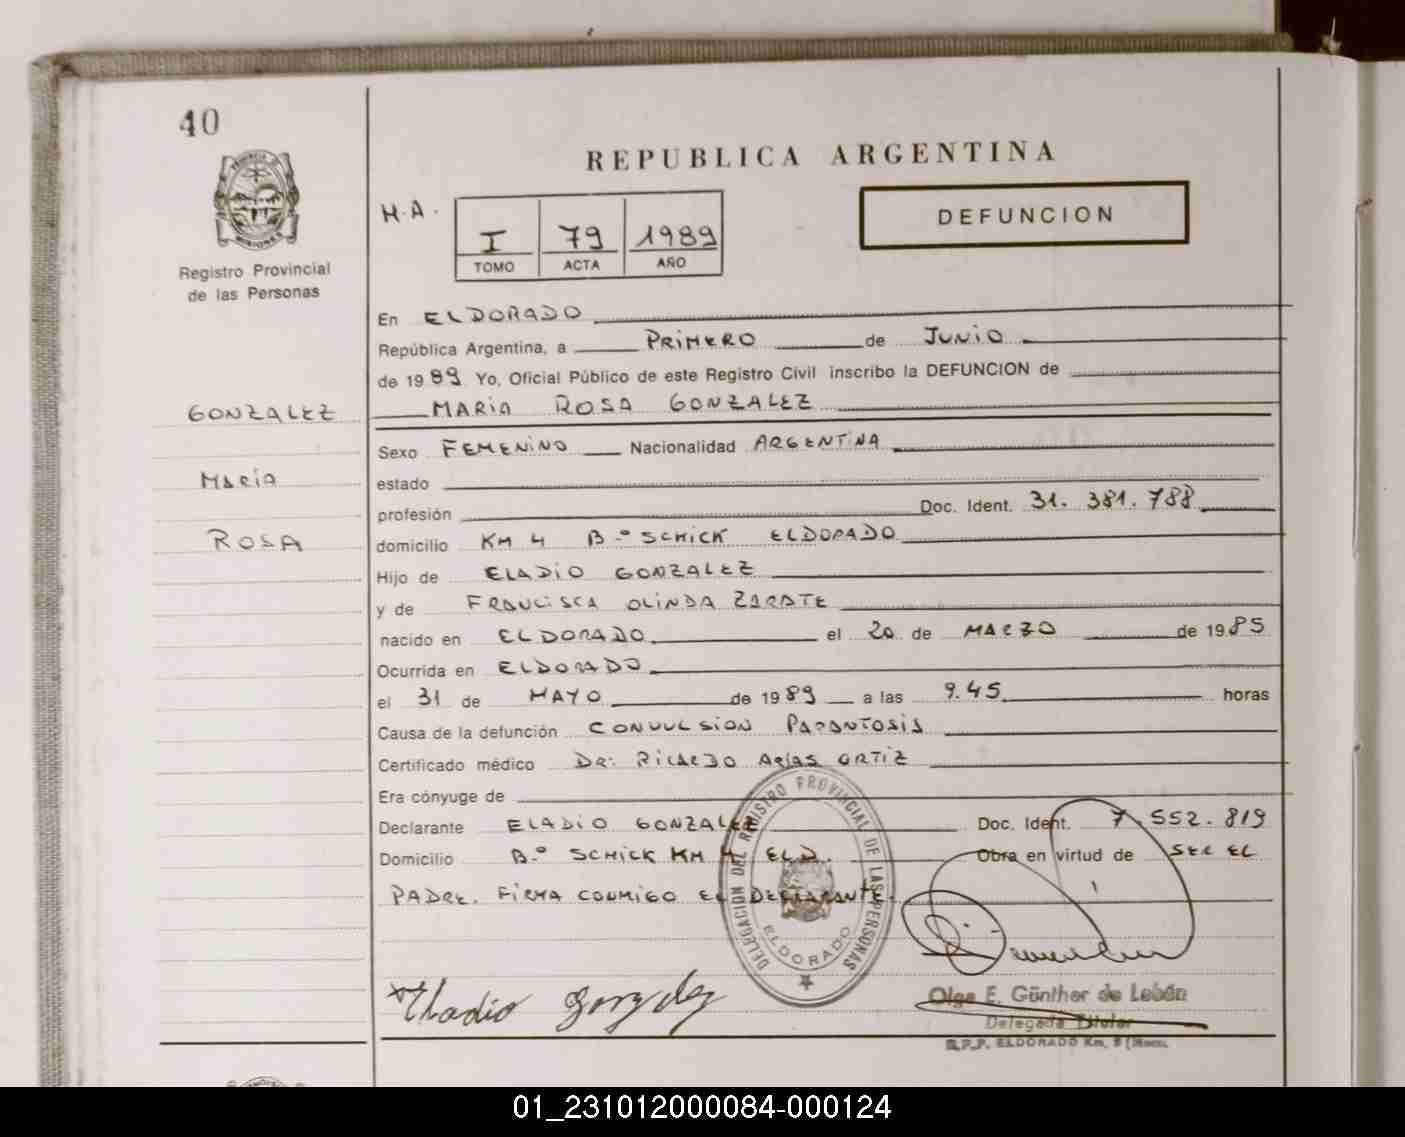 40
REPUBLICA ARGENTINA
M.A.
I 79 1989
TOMO ACTA AÑO
DEFUNCION
MISIONES
Registro Provincial
de las Personas
En ELDORADO
República Argentina, a PRIMERO de JUNIO
de 1989 Yo, Oficial Público de este Registro Civil inscribo la DEFUNCION de
GONZALEZ
MARIA ROSA GONZALEZ
Sexo FEMENINO Nacionalidad ARGENTINA
MARIA
estado
profesión Doc. Ident. 31.381.788
ROSA
domicilio KM 4 B.º SCHICK ELDORADO
Hijo de ELADIO GONZALEZ
y de FRANCISCA OLINDA ZARATE
nacido en ELDORADO el 20 de MARZO de 1985
Ocurrida en ELDORADO
el 31 de MAYO de 1989 a las 9.45 horas
Causa de la defunción CONVULSION
Certificado médico DR: RICARDO ARIAS ORTIZ
Era cónyuge de
Declarante ELADIO GONZALEZ Doc. Ident. 7.552.819
Domicilio B.º SCHICK KM 4 ELD. Obra en virtud de SER EL
PADRE. FIRMA CONMIGO EL DECLARANTE.
DELEGACION DEL REGISTRO PROVINCIAL DE LAS PERSONAS
ELDORADO
Eladio Gonzalez
Olga E. Günther de Lebán
Delegada Titular
R.P.P. ELDORADO Km. 9 (Mnes.
01_231012000084-000124